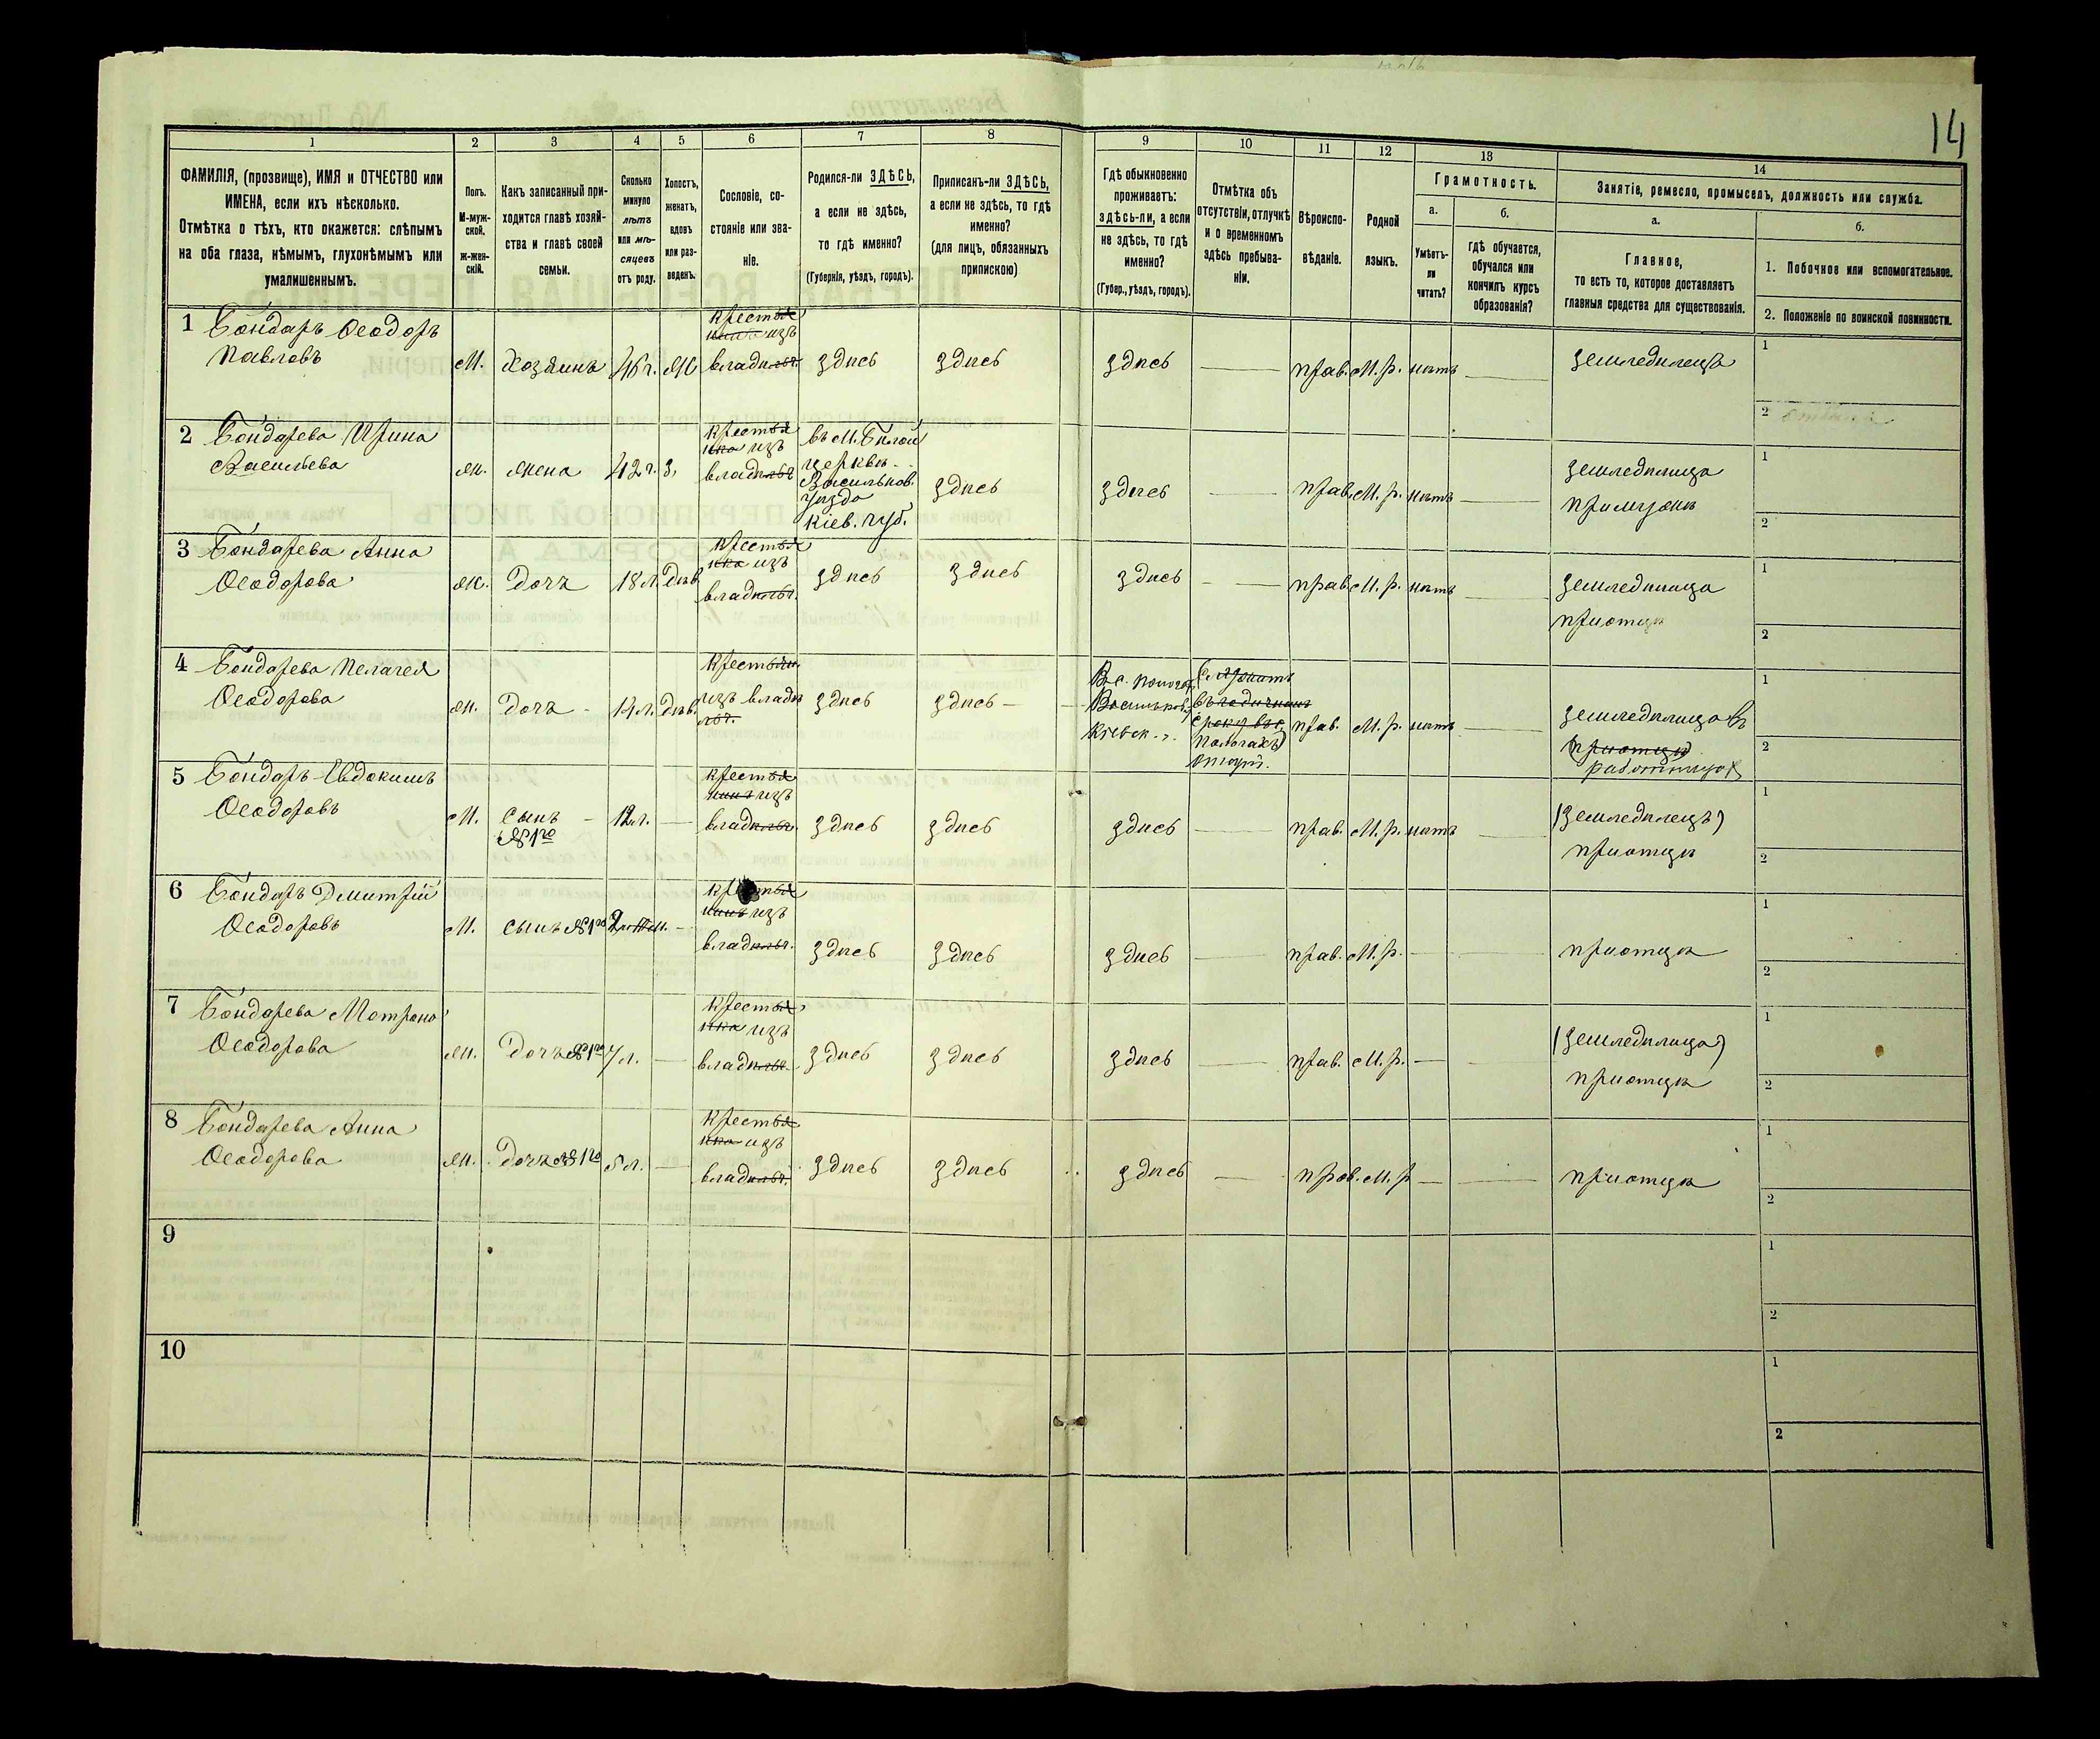 14
1 2 3 4 5 6 7 8 9 10 11 12 13 14
ФАМИЛІЯ, (прозвище), ИМЯ и ОТЧЕСТВО или
ИМЕНА, если ихъ нѣсколько.
Отмѣтка о тѣхъ, кто окажется: слѣпымъ
на оба глаза, нѣмымъ, глухонѣмымъ или
умалишеннымъ.
Полъ.
М-муж-
ской.
ж-жен-
скій.
Какъ записанный при-
ходится главѣ хозяй-
ства и главѣ своей
семьи.
Сколько
минуло
лѣтъ
или мѣ-
сяцевъ
отъ роду.
Холостъ,
женатъ,
вдовъ
или раз-
веденъ.
Сословіе, со-
стояніе или зва-
ніе.
Родился-ли ЗДѢСЬ,
а если не здѣсь,
то гдѣ именно?
(Губернія, уѣздъ, городъ).
Приписанъ-ли ЗДѢСЬ,
а если не здѣсь, то гдѣ
именно?
(для лицъ, обязанныхъ
припискою)
Гдѣ обыкновенно
проживаетъ:
здѣсь-ли, а если
не здѣсь, то гдѣ
именно?
(Губер., уѣздъ, городъ).
Отмѣтка объ
отсутствіи, отлучкѣ
и о временномъ
здѣсь пребыва-
ніи.
Вѣроиспо-
вѣданіе.
Родной
языкъ.
Грамотность.
а.
Умѣетъ-
ли
читать?
б.
гдѣ обучается,
обучался или
кончилъ курсъ
образованія?
Занятіе, ремесло, промыселъ, должность или служба.
а.
Главное,
то есть то, которое доставляетъ
главныя средства для существованія.
б.
1. Побочное или вспомогательное.
2. Положеніе по воинской повинности.
1 Бондарь Ѳеодоръ
Павловъ
М. Хозяинъ 46 г. Ж
крестья
нинъ изъ
владѣльч.
здѣсь здѣсь здѣсь — прав. М. р. нѣтъ — земледѣлецъ
1
2
2 Бондарева Ирина
Васильева
ж. жена 42 г. З.
крестья
нка изъ
владѣльч
въ М. Бѣлой
церкви
Васильков.
уѣзда
Кіев. губ.
здѣсь здѣсь — прав. М. р. нѣтъ — земледѣлица
при мужѣ
1
2
3 Бондарева Анна
Ѳеодорова
ж. дочь 18 л. Дѣв.
крестья
нка изъ
владѣльч.
здѣсь здѣсь здѣсь — прав. М. р. нѣтъ — земледѣлица
при отцѣ
1
2
4 Бондарева Пелагея
Ѳеодорова
ж. дочь - 14 л. Дѣв.
крестьян.
изъ владѣ
льч.
здѣсь здѣсь —
Васильков.
Кіевск. г.
прав. М. р. нѣтъ — земледѣлица въ
(при отцѣ)
работницах
1
2
5 Бондарь Евдокимъ
Ѳеодоровъ
М. сынъ - 12 л. —
№ 1го
крестья
нинъ изъ
владѣльч.
здѣсь здѣсь здѣсь — прав. М. р. нѣтъ — (земледѣлецъ)
при отцѣ
1
2
6 Бондарь Дмитрій
Ѳеодоровъ
М. сынъ № 1го
крестья
нинъ изъ
владѣльч.
здѣсь здѣсь здѣсь — прав. М. р. — при отцѣ
1
2
7 Бондарева Матрона
Ѳеодорова
ж. дочь № 1го 7 л. —
крестья
нка изъ
владѣльч.
здѣсь здѣсь здѣсь — прав. М. р. — (земледѣлица)
при отцѣ
1
2
8 Бондарева Анна
Ѳеодорова
ж. дочь № 1го 5 л. —
крестья
нка изъ
владѣльч.
здѣсь здѣсь здѣсь — прав. М. р — при отцѣ
1
2
9
1
2
10
1
2